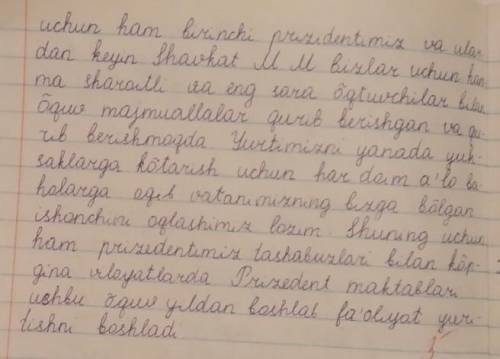 uchun ham birinchi prizidentimiz va ular-
dan keyin Shavkat M M bizlar uchun ham-
ma sharoitli va eng sara õqituvchilar bilan
Õquv majmuallalar qurib berishgan va qu-
rib berishmoqda Yurtimizni yanada yuk-
saklarga kõtarish uchun har doim a'lo ba-
holarga oqib vatanimizning bizga bõlgan
ishonchini oqlashimiz lozim. Shuning uchun
ham prizedentimiz tashabuzlari bilan kõp-
gina viloyatlarda Prizedent maktablari
ushbu õquv yildan boshlab fa'oliyat yuri-
tishni boshladi.